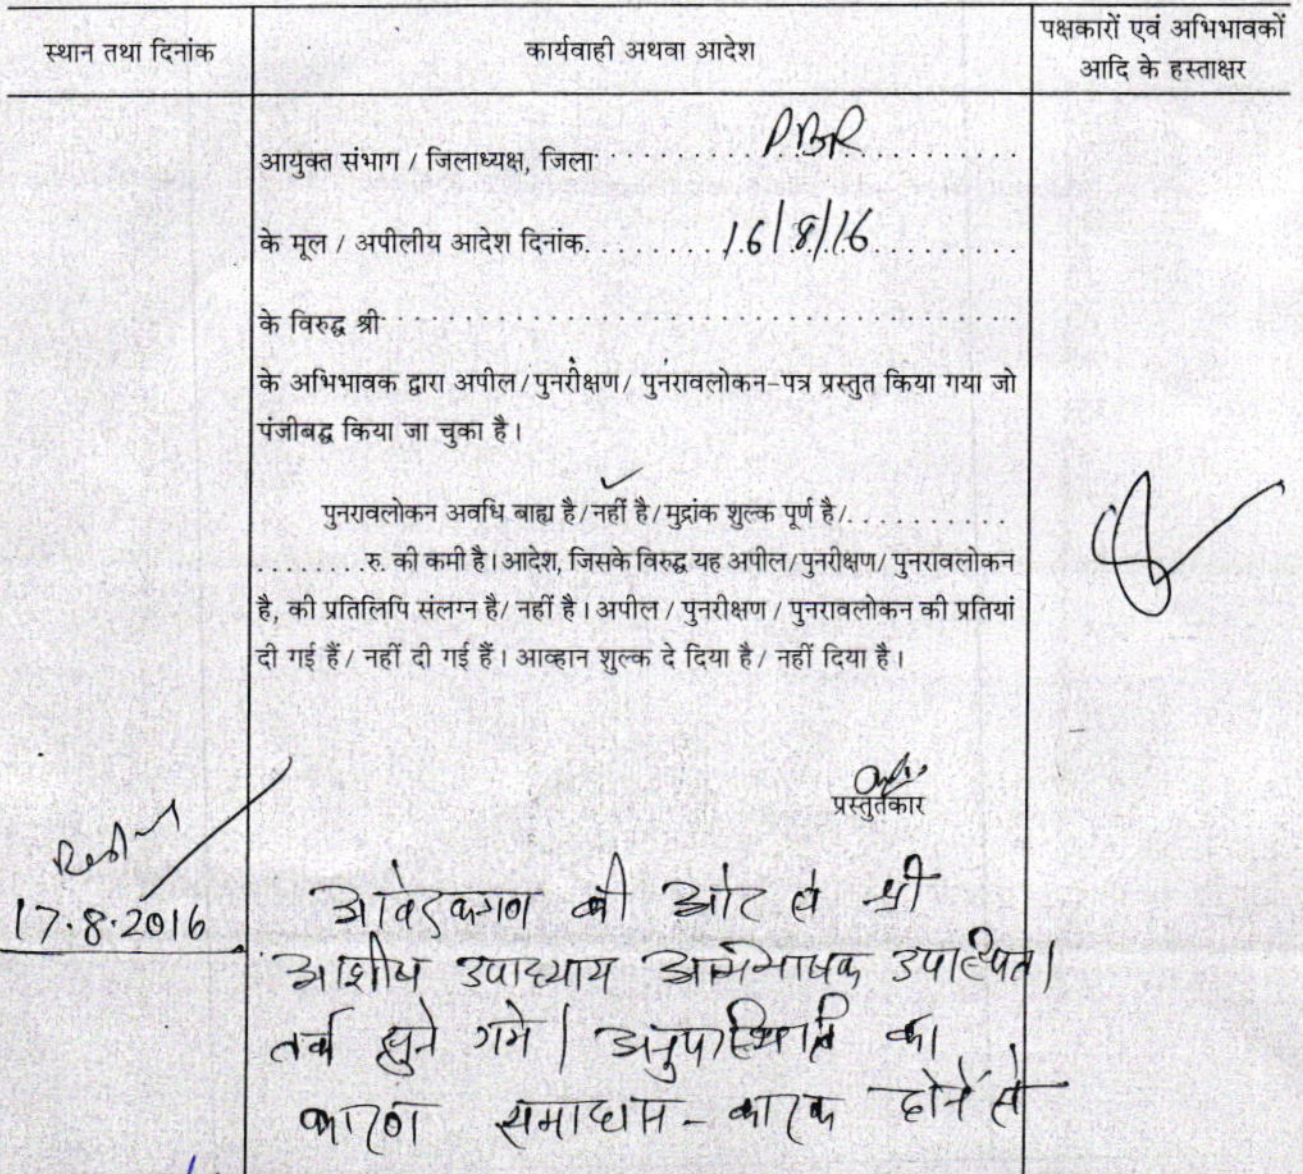 स्थान तथा दिनांक
कार्यवाही अथवा आदेश
पक्षकारों एवं अभिभावकों
आदि के हस्ताक्षर
आयुक्त संभाग / जिलाध्यक्ष, जिला PBR
के मूल / अपीलीय आदेश दिनांक. 16/8/16
के विरुद्ध श्री
के अभिभावक द्वारा अपील/पुनरीक्षण/ पुनरावलोकन-पत्र प्रस्तुत किया गया जो
पंजीबद्ध किया जा चुका है।
पुनरावलोकन अवधि बाह्य है/नहीं है/मुद्रांक शुल्क पूर्ण है/..........
.........रु. की कमी है। आदेश, जिसके विरुद्ध यह अपील/पुनरीक्षण/ पुनरावलोकन
है, की प्रतिलिपि संलग्न है/ नहीं है। अपील / पुनरीक्षण / पुनरावलोकन की प्रतियां
दी गई हैं/ नहीं दी गई हैं। आव्हान शुल्क दे दिया है/ नहीं दिया है।
प्रस्तुतकार
17.8.2016
आवेदकगण की ओर से श्री
आशीष उपाध्याय अभिभाषक उपस्थित।
तर्क सुने गये। अनुपस्थिति का
कारण समाधान-कारक होने से